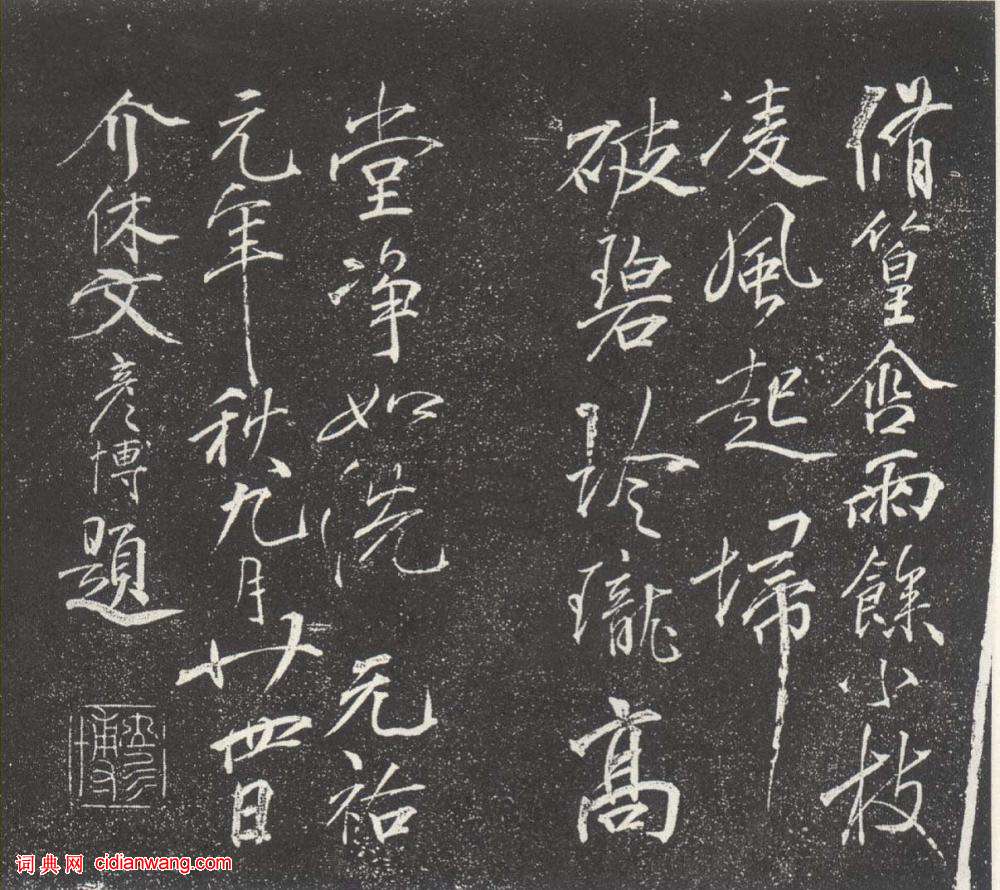 脩篁含雨餘小枝
凌風起掃
破碧玲瓏高
堂净如洗 元祐
元年秋九月廿四日
介休文彦博題
彦博
词典网 cidianwang.com